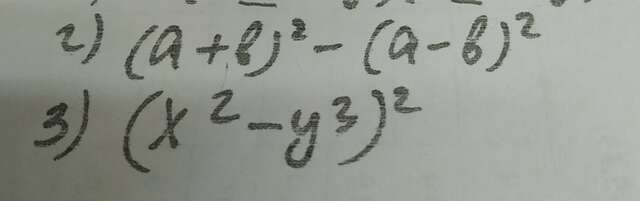 2) (a+b)² - (a-b)²
3) (x² - y³)²